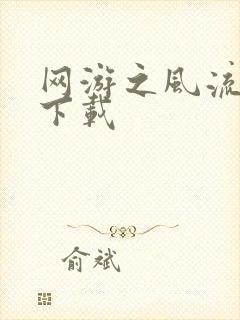 网游之风流
下载
俞斌